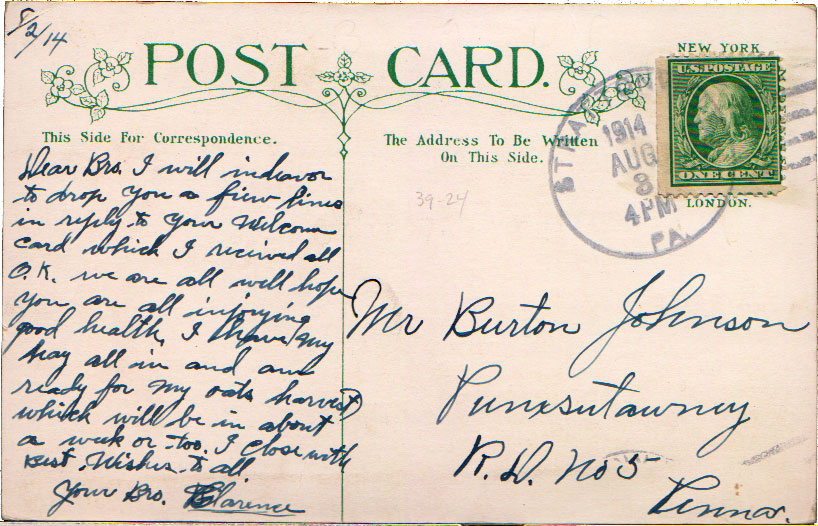 8/2/14
POST CARD.
NEW YORK
U.S. POSTAGE
ONE CENT
LONDON.
1914
AUG
3
4PM
PA.
This Side For Correspondence.
The Address To Be Written
On This Side.
39-24
Dear Bro. I will indeavor
to drop you a fiew lines
in reply to your Welcome
card which I recieved all
O.K. we are all well hope
you are all injoying
good health, I have my
hay all in and am
ready for my oats harvest
which will be in about
a week or too. I close with
Best Wishes to all
Your Bro. Clarence
Mr Burton Johnson
Punxsutawney
R.D. No 5
Penna.